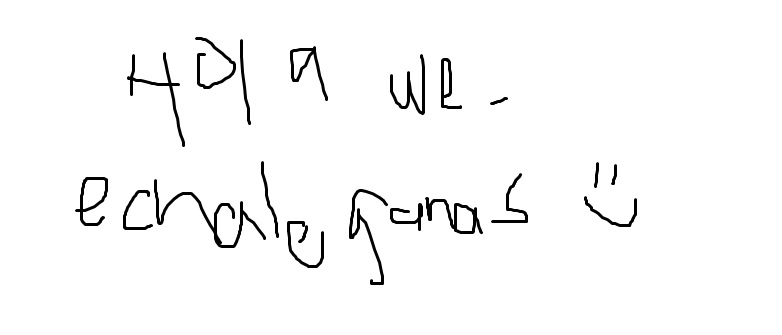 Hola we.
echale ganas :)